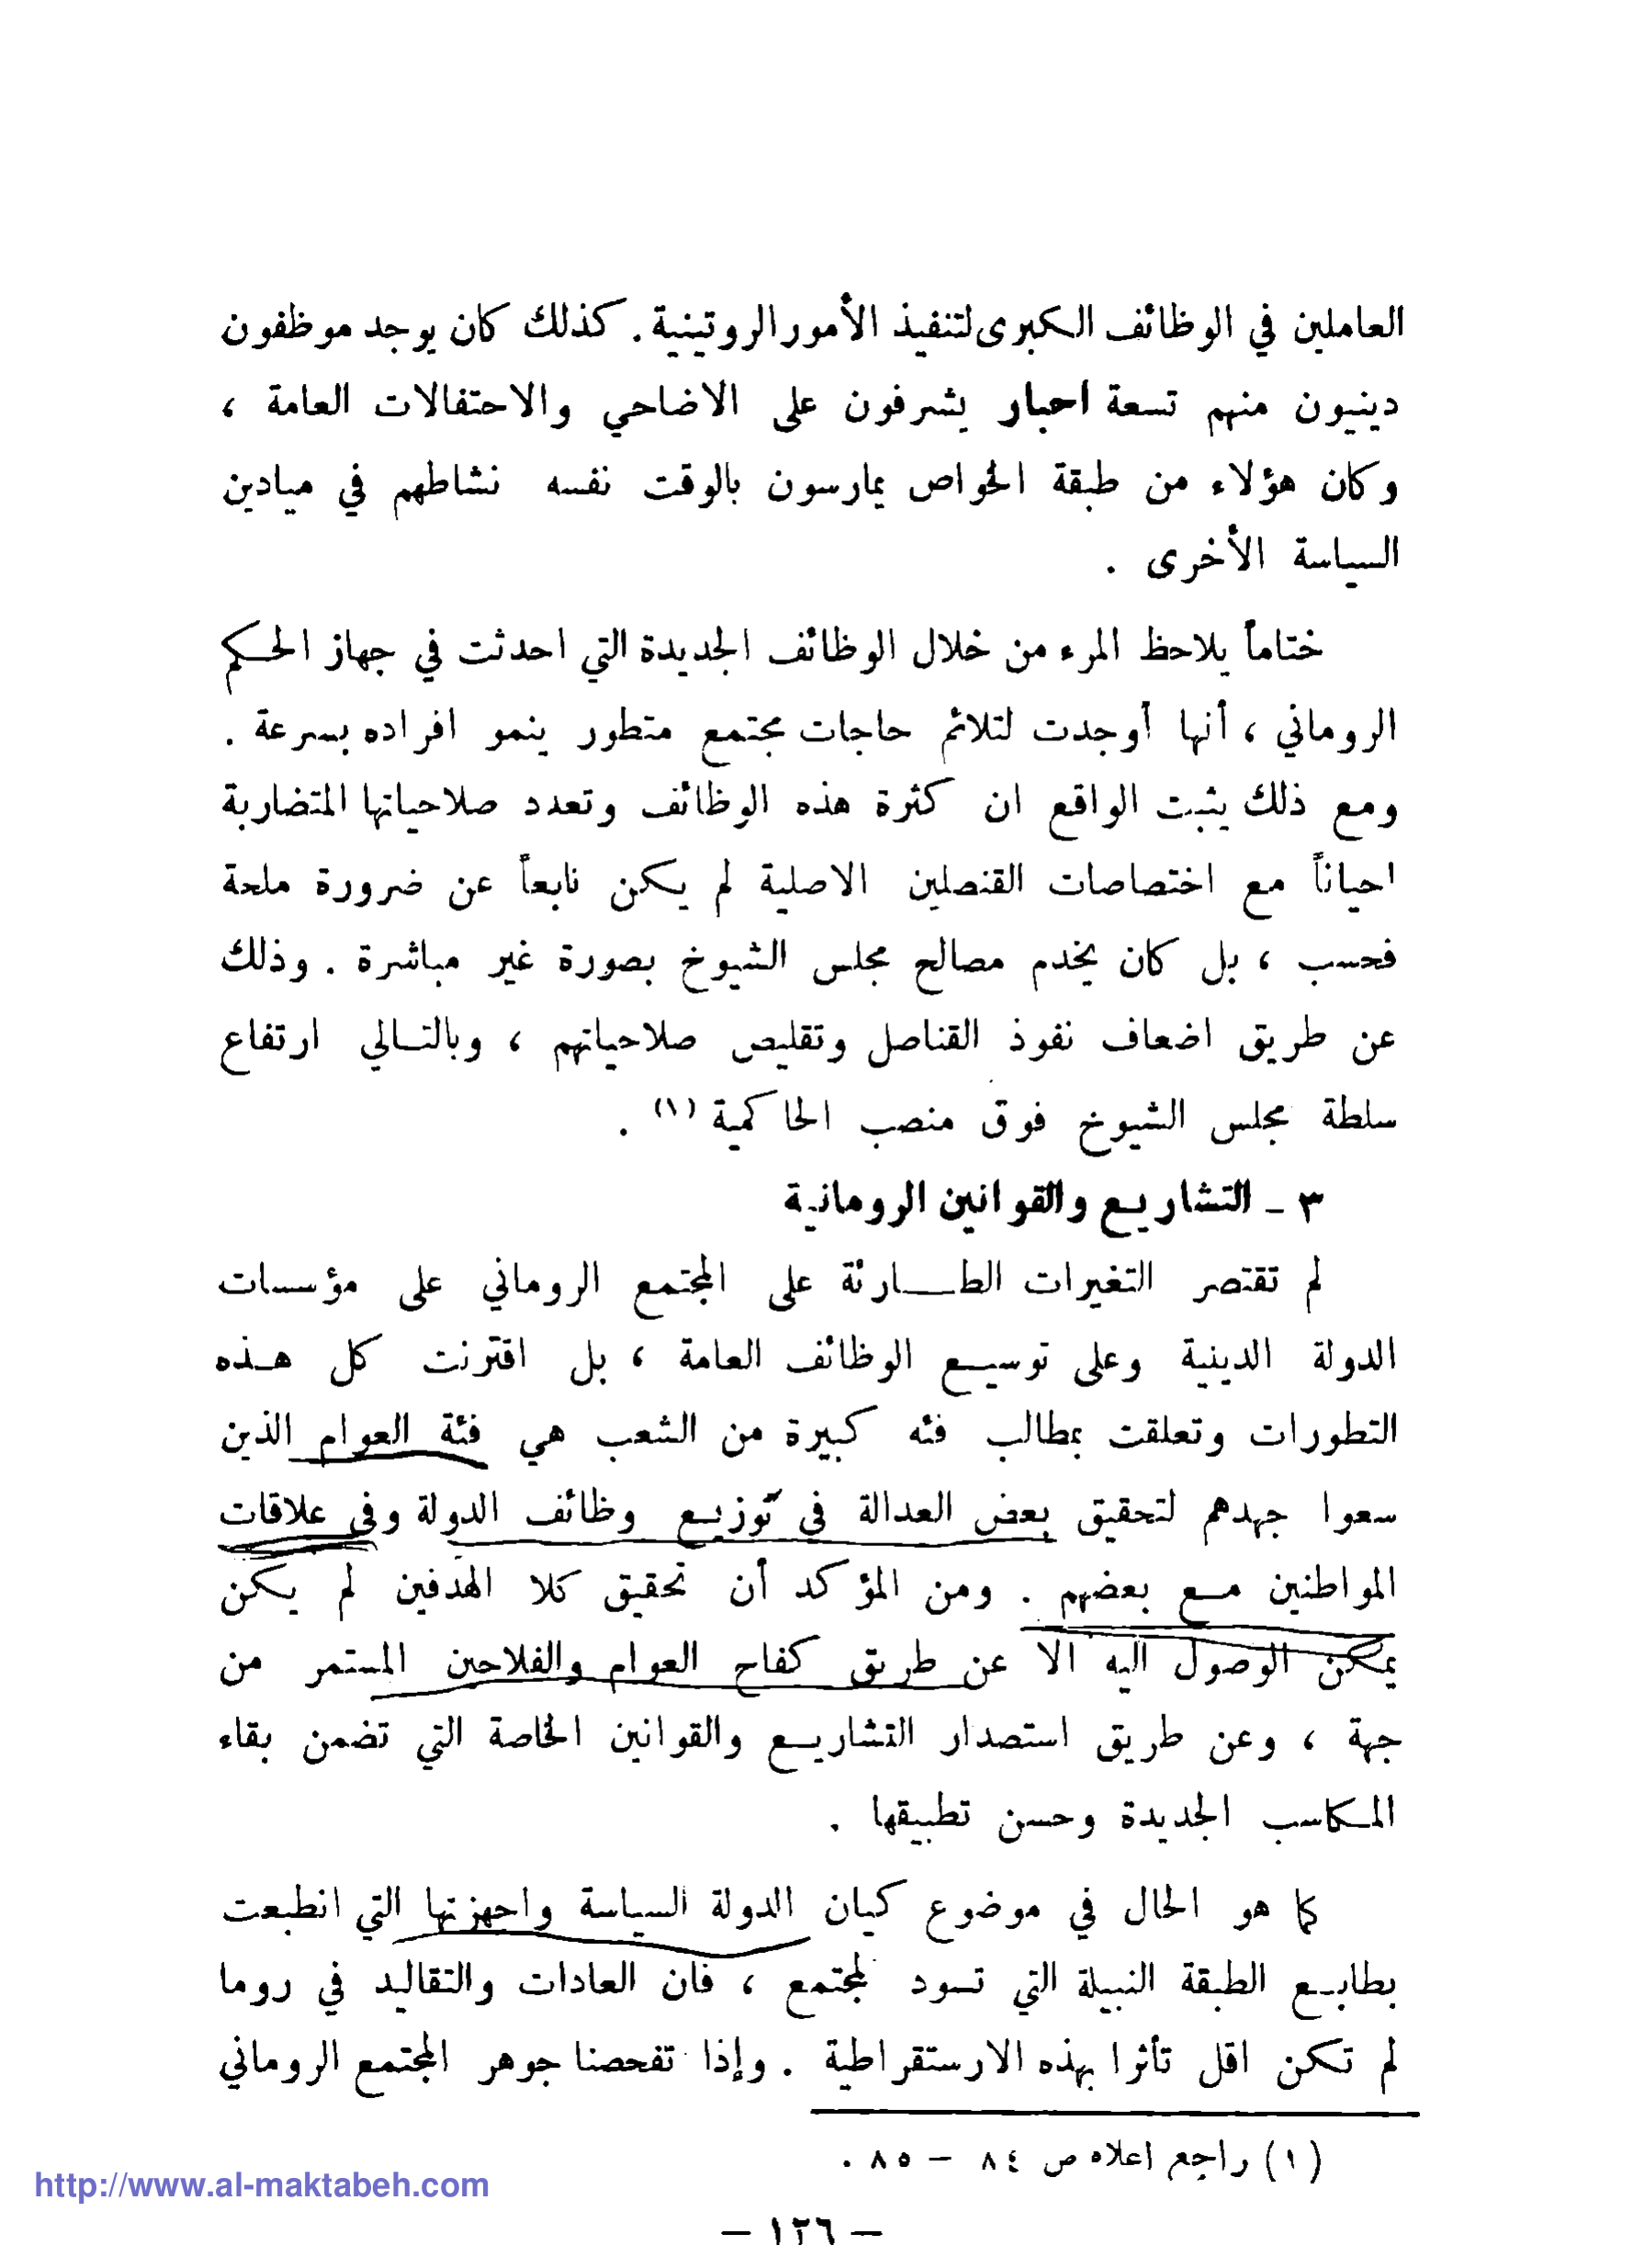 العاملين في الوظائف الكبرى لتنفيذ الأمور الروتينية. كذلك كان يوجد موظفون
دينيون منهم تسعة احبار يشرفون على الاضاحي والاحتفالات العامة ،
وكان هؤلاء من طبقة الخواص يمارسون بالوقت نفسه نشاطهم في ميادين
السياسة الأخرى .
ختاماً يلاحظ المرء من خلال الوظائف الجديدة التي احدثت في جهاز الحكم
الروماني ، أنها أوجدت لتلائم حاجات مجتمع متطور ينمو افراده بسرعة .
ومع ذلك يثبت الواقع ان كثرة هذه الوظائف وتعدد صلاحياتها المتضاربة
احياناً مع اختصاصات القنصلين الاصلية لم يكن نابعاً عن ضرورة ملحة
فحسب ، بل كان يخدم مصالح مجلس الشيوخ بصورة غير مباشرة . وذلك
عن طريق اضعاف نفوذ القناصل وتقليص صلاحياتهم ، وبالتالي ارتفاع
سلطة مجلس الشيوخ فوق منصب الحاكمية (١) .
٣ - التشاريع والقوانين الرومانية
لم تقتصر التغيرات الطارئة على المجتمع الروماني على مؤسسات
الدولة الدينية وعلى توسيع الوظائف العامة ، بل اقترنت كل هذه
التطورات وتعلقت بمطالب فئه كبيرة من الشعب هي فئة العوام الذين
سعوا جهدهم لتحقيق بعض العدالة في توزيع وظائف الدولة وفي علاقات
المواطنين مع بعضهم . ومن المؤكد أن تحقيق كلا الهدفين لم يكن
يمكن الوصول اليه الا عن طريق كفاح العوام والفلاحين المستمر من
جهة ، وعن طريق استصدار التشاريع والقوانين الخاصة التي تضمن بقاء
المكاسب الجديدة وحسن تطبيقها .
كما هو الحال في موضوع كيان الدولة السياسة واجهزتها التي انطبعت
بطابع الطبقة النبيلة التي تسود لمجتمع ، فان العادات والتقاليد في روما
لم تكن اقل تأثرا بهذه الارستقراطية . وإذا تفحصنا جوهر المجتمع الروماني
(١) راجع اعلاه ص ٨٤ – ٨٥ .
http://www.al-maktabeh.com
– ١٢٦ –